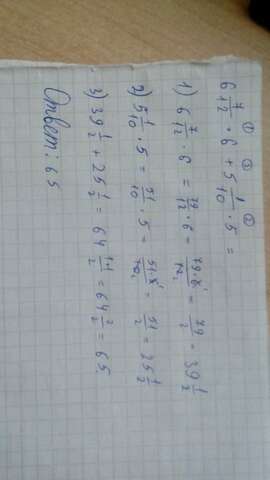 ① ③ ②
6 7/12 · 6 + 5 1/10 · 5 =
1) 6 7/12 · 6 = 79/12 · 6 = 79·6/12 = 79/2 = 39 1/2
2) 5 1/10 · 5 = 51/10 · 5 = 51·5/10 = 51/2 = 25 1/2
3) 39 1/2 + 25 1/2 = 64 1+1/2 = 64 2/2 = 65
Ответ: 65